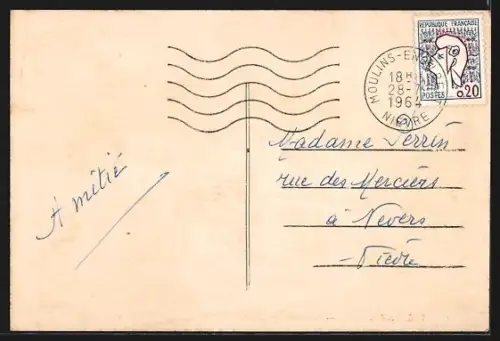 RÉPUBLIQUE FRANÇAISE
POSTES 0.20
MOULINS-EN
18H
28-7
1964
NIÈVRE
Amitié
Madame Perrin
rue des Merciers
à Nevers
Nièvre